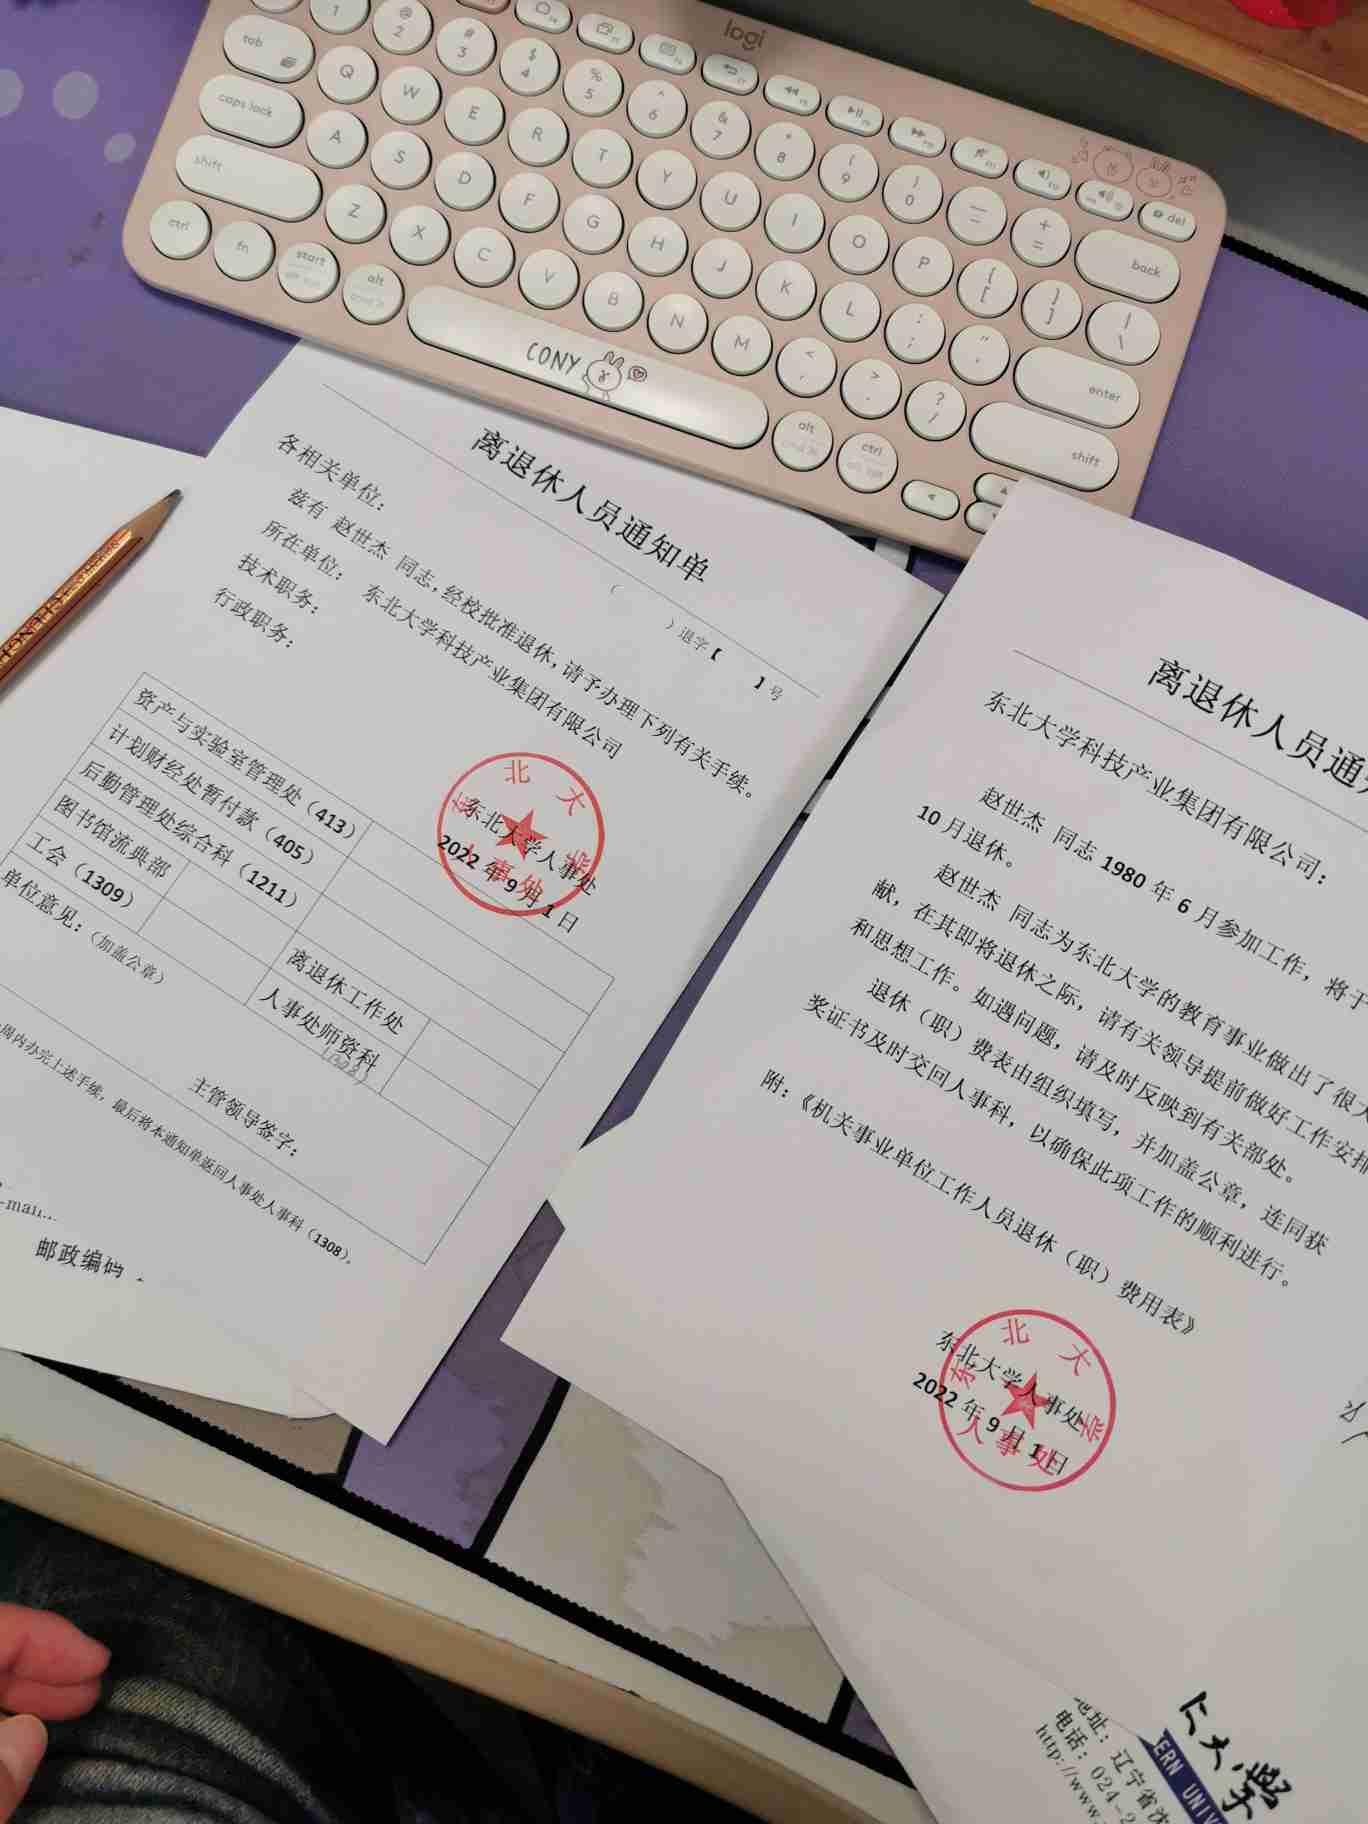 logi
1 @ 2 # 3 $ 4 % 5 ^ 6 & 7 * 8 ( 9 ) 0 — + = back
tab Q W E R T Y U I O P { [ } ] | \
caps lock A S D F G H J K L : ; " ' enter
shift Z X C V B N M < , > . ? / shift
ctrl fn start alt CONY alt ctrl
del
离退休人员通知单
( ) 退字【 】号
各相关单位：
兹有 赵世杰 同志，经校批准退休，请予办理下列有关手续。
所在单位： 东北大学科技产业集团有限公司
技术职务：
行政职务：
东北大学人事处
2022 年 9 月 1 日
东北大学
人事处
资产与实验室管理处（413）
计划财经处暂付款（405）
后勤管理处综合科（1211）
图书馆流典部 离退休工作处
工会（1309） 人事处师资科
单位意见：（加盖公章）
主管领导签字：
周内办完上述手续，最后将本通知单返回人事处人事科（1308）。
邮政编码
离退休人员通
东北大学科技产业集团有限公司：
赵世杰 同志 1980 年 6 月参加工作，将于
10 月退休。
赵世杰 同志为东北大学的教育事业做出了很大
献，在其即将退休之际，请有关领导提前做好工作安排
和思想工作。如遇问题，请及时反映到有关部处。
退休（职）费表由组织填写，并加盖公章，连同获
奖证书及时交回人事科，以确保此项工作的顺利进行。
附：《机关事业单位工作人员退休（职）费用表》
东北大学人事处
2022 年 9 月 1 日
东北大学
人事处
大学
ERN UNIV
地址：辽宁省沈
电话：024-2
http://www.